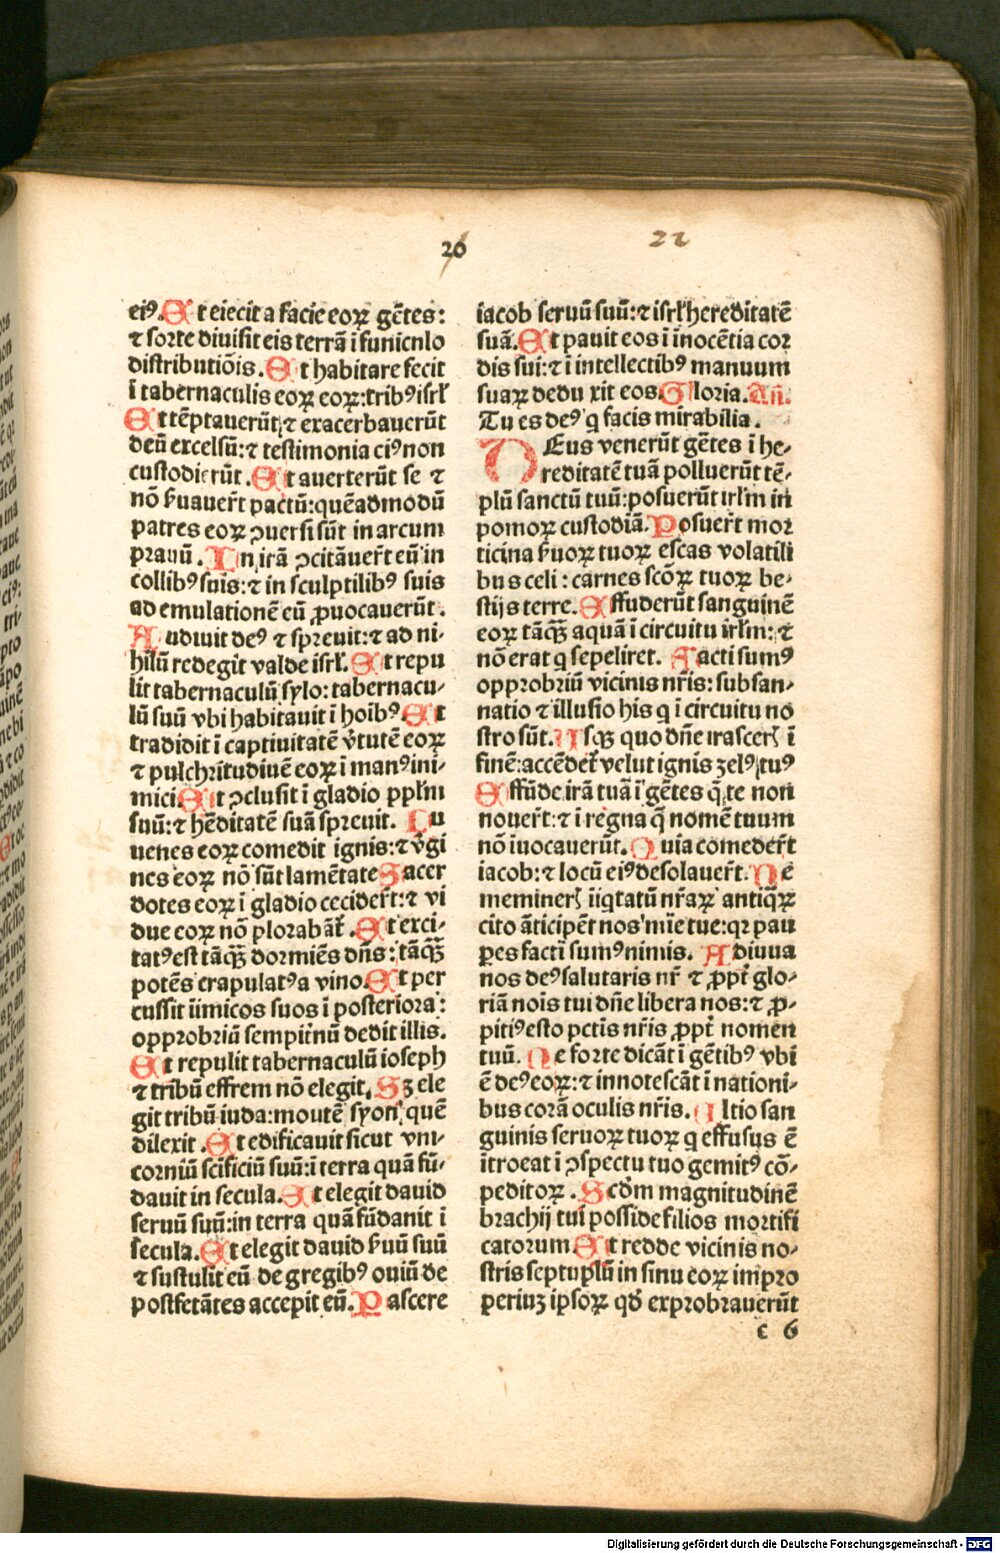 20
22
eiꝰ. Et eiecit a facie eoꝝ gẽtes:
⁊ sorte diuisit eis terrã ĩ funicnlo
distributiõis. Et habitare fecit
ĩ tabernaculis eoꝝ eoꝝ: tribꝰ isrł
Et tẽptauerũt: ⁊ exacerbauerũt
deũ excelsũ: ⁊ testimonia eiꝰ non
custodierũt. Et auerterũt se ⁊
nõ ẜuauer̃t pactũ: quẽadmodũ
patres eoꝝ ↄuersi sũt in arcum
prauũ. In irã ↄcitãuer̃t eũ in
collibꝰ suis: ⁊ in sculptilibꝰ suis
ad emulationẽ eũ ꝓuocauerũt.
Audiuit deꝰ ⁊ spreuit: ⁊ ad ni-
hilũ redegit valde isrł. Et repu
lit tabernaculũ sylo: tabernacu-
lũ suũ vbi habitauit ĩ hoĩbꝰ. Et
tradidit ĩ captiuitatẽ v̾tutẽ eoꝝ
⁊ pulchritudiuẽ eoꝝ ĩ manꝰ ini-
mici Et ↄclusit ĩ gladio pplm̃
suũ: ⁊ hẽditatẽ suã spreuit. Iu
uenes eoꝝ comedit ignis: ⁊ v̾gi
nes eoꝝ nõ sũt lamẽtate Sacer
dotes eoꝝ ĩ gladio cecider̃t: ⁊ vi
due eoꝝ nõ plorabãt̃. Et exci-
tatꝰ est tãꝙ̃ dormiẽs dñs: tãꝙ̃
potẽs crapulatꝰ a vino. Et per
cussit iĩmicos suos ĩ posteriora:
opprobriũ sempit̾nũ dedit illis.
Et repulit tabernaculũ ioseph
⁊ tribũ effrem nõ elegit. Sꝫ ele
git tribũ iuda: moutẽ syon quẽ
dilexit. Et edificauit sicut vni-
corniũ sc̃ificiũ suũ: ĩ terra quã fũ-
dauit in secula. Et elegit dauid
seruũ suũ: in terra quã fũdanit ĩ
secula. Et elegit dauid ẜuũ suũ
⁊ sustulit eũ de gregibꝰ ouiũ de
postfetãtes accepit eũ. Pascere
iacob seruũ suũ: ⁊ isrł hereditatẽ
suã. Et pauit eos ĩ inocẽtia cor
dis sui: ⁊ ĩ intellectibꝰ manuum
suaꝝ dedu xit eos. Gloria. Añ.
Tu es deꝰ q̇ facis mirabilia.
DEus venerũt gẽtes ĩ he-
reditatẽ tuã polluerũt tẽ-
plũ sanctũ tuũ: posuerũt irłm in
pomoꝝ custodiã. Posuer̃t mor
ticina ẜuoꝝ tuoꝝ escas volatili
bus celi: carnes scõꝝ tuoꝝ be-
stijs terre. Effuderũt sanguinẽ
eoꝝ tãꝙ̃ aquã ĩ circuitu irłm: ⁊
nõ erat q̇ sepeliret. Facti sumꝰ
opprobriũ vicinis nr̃is: subsan-
natio ⁊ illusio his q̇ ĩ circuitu no
stro sũt. Usqꝫ quo dñe irascerꝭ ĩ
finẽ: accẽdet̃ velut ignis zelꝰ tuꝰ
Effũde irã tuã ĩ gẽtes q̃ te non
nouer̃t: ⁊ ĩ regna q̃ nomẽ tuum
nõ ĩuocauerũt. Quia comeder̃t
iacob: ⁊ locũ eiꝰ desolauer̃t. Ne
meminerꝭ iĩqtatũ nr̃aꝝ antiq̃ꝝ
cito ãticipẽt nos mĩe tue: qꝛ pau
ꝑes facti sumꝰ nimis. Adiuua
nos deꝰ salutaris nr̃ ⁊ ꝓpt̃ glo-
riã nois tui dñe libera nos: ⁊ ꝓ-
pitiꝰ esto pctis nr̃is ꝓpt̃ nomen
tuũ. Ne forte dicãt ĩ gẽtibꝰ vbi
ẽ deꝰ eoꝝ: ⁊ innotescãt ĩ nationi-
bus corã oculis nr̃is. Ultio san
guinis seruoꝝ tuoꝝ q̇ effusus ẽ
ĩtroeat ĩ ↄspectu tuo gemitꝰ cõ-
peditoꝝ. Scd̃m magnitudinẽ
brachij tui posside filios mortifi
catorum Et redde vicinis no-
stris septuplũ in sinu eoꝝ impro
periuꝫ ipsoꝝ qd̾ exprobrauerũt
c 6
Digitalisierung gefördert durch die Deutsche Forschungsgemeinschaft - DFG